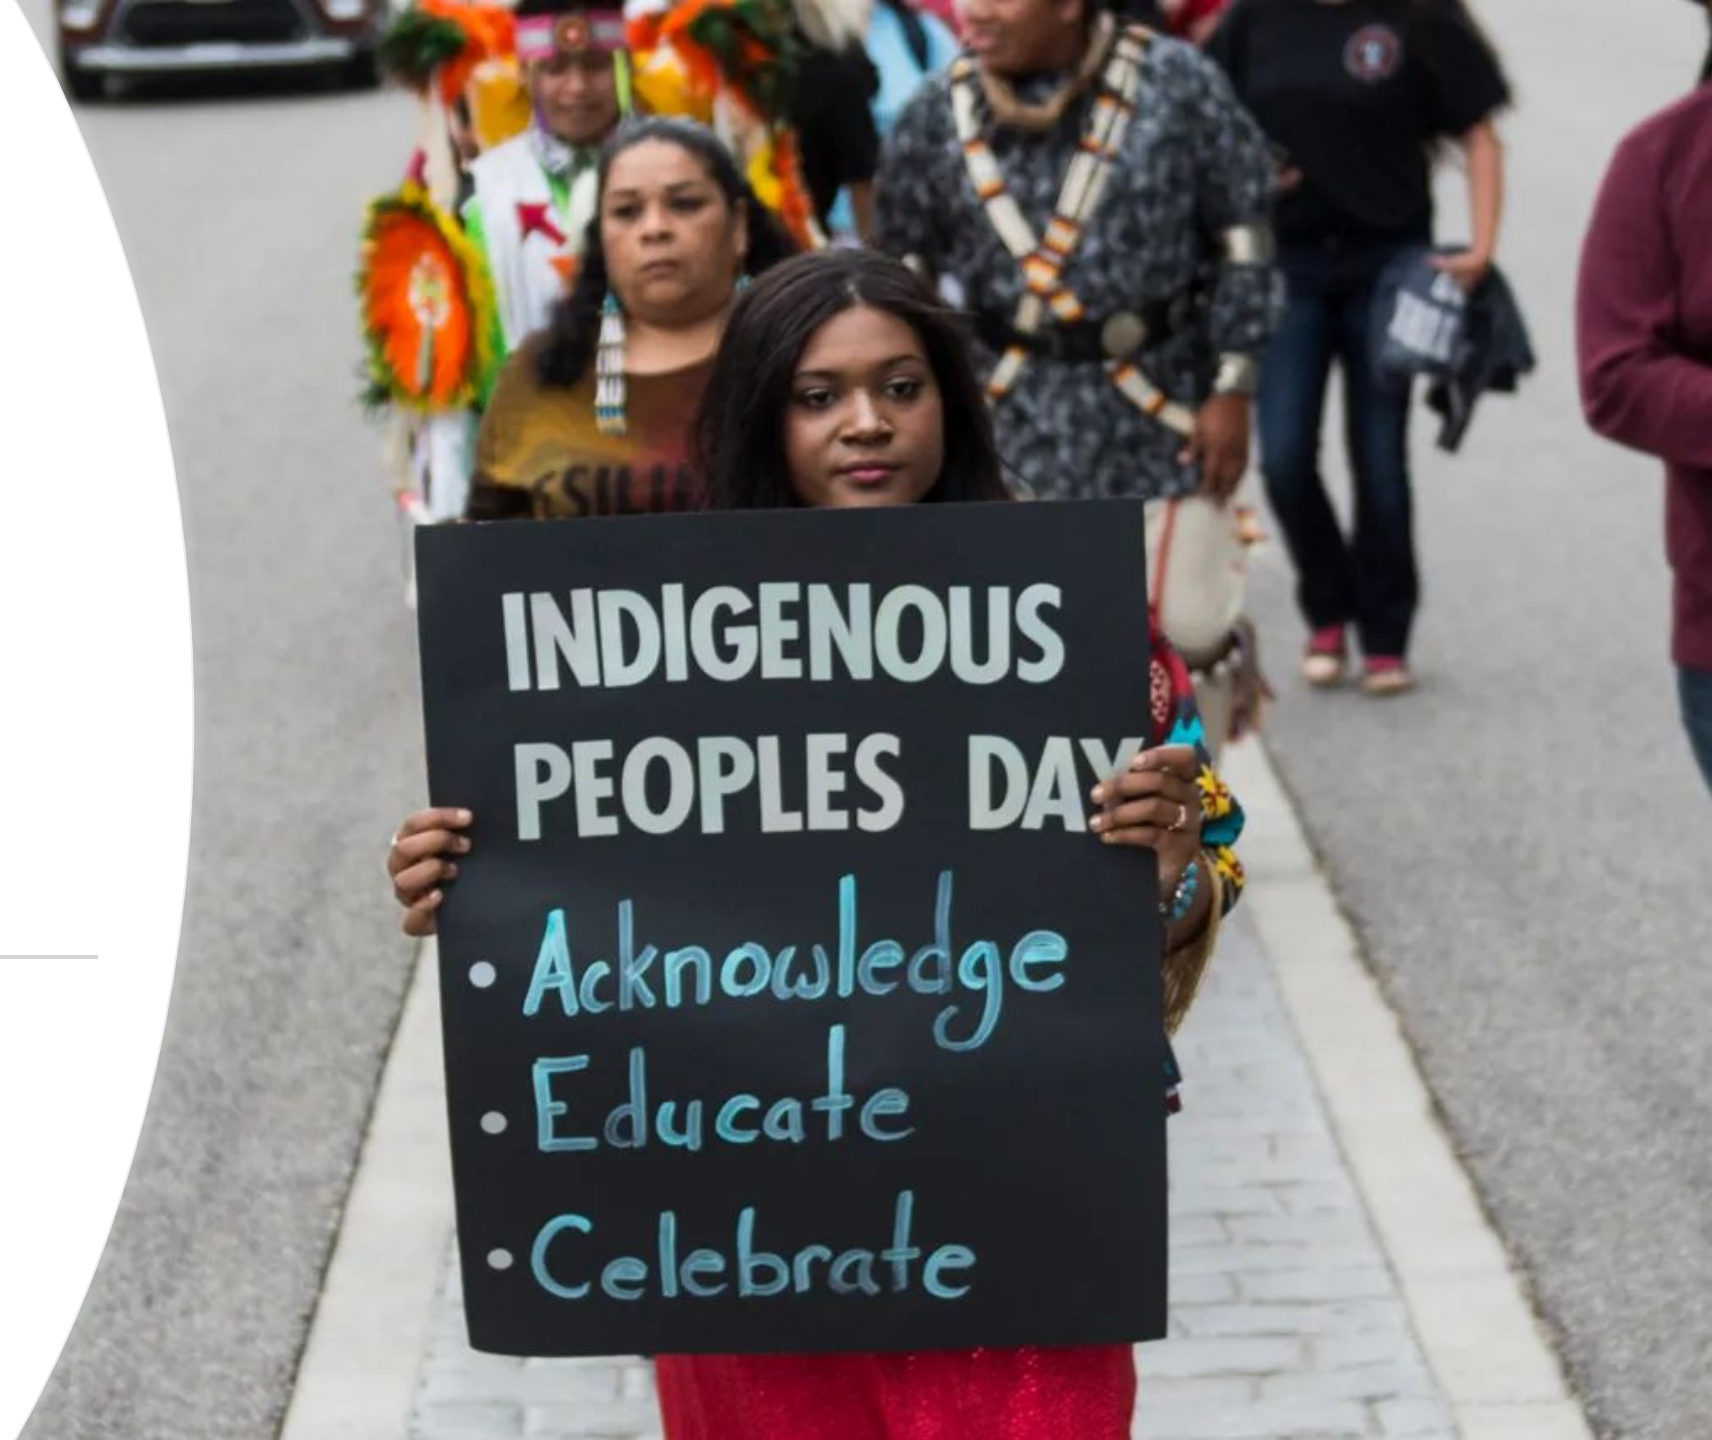 INDIGENOUS
PEOPLES DAY
• Acknowledge
• Educate
• Celebrate